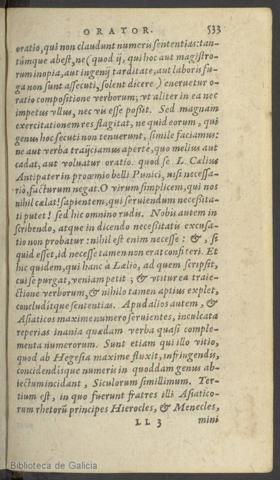 ORATOR. 533
oratio, qui non claudunt numeris sententias: tan-
túmque abest, ne (quod ij, qui hoc aut magistro-
rum inopia, aut ingenij tarditate, aut laboris fu-
ga non sunt assecuti, solent dicere) eneruetur o-
ratio compositione verborum; vt aliter in ea nec
impetus vllus, nec vis esse possit. Sed magnam
exercitationem res flagitat, ne quid eorum, qui
genus hoc secuti non tenuerunt, simile faciamus:
ne aut verba traijciamus apertè, quo melius aut
cadat, aut voluatur oratio. quod se L. Cælius
Antipater in proœmio belli Punici, nisi necessa-
riò, facturum negat. O virum simplicem, qui nos
nihil celat! sapientem, qui seruiendum necessita-
ti putet! sed hic omnino rudis. Nobis autem in
scribendo, atque in dicendo necessitatis excusa-
tio non probatur: nihil est enim necesse: &, si
quid esset, id necesse tamen non erat confiteri. Et
hic quidem, qui hanc à Lælio, ad quem scripsit,
cui se purgat, veniam petit; & vtitur ea traie-
ctione verborum, & nihilo tamen aptius explet,
concluditque sententias. Apud alios autem, &
Asiaticos maxime numero seruientes, inculcata
reperias inania quædam verba quasi comple-
menta numerorum. Sunt etiam qui illo vitio,
quod ab Hegesia maxime fluxit, infringendis,
concidendisque numeris in quoddam genus ab-
iectum incidant, Siculorum simillimum. Ter-
tium est, in quo fuerunt fratres illi Asiatico-
rum rhetorũ principes Hierocles, & Menecles,
LL 3 mini
Biblioteca de Galicia